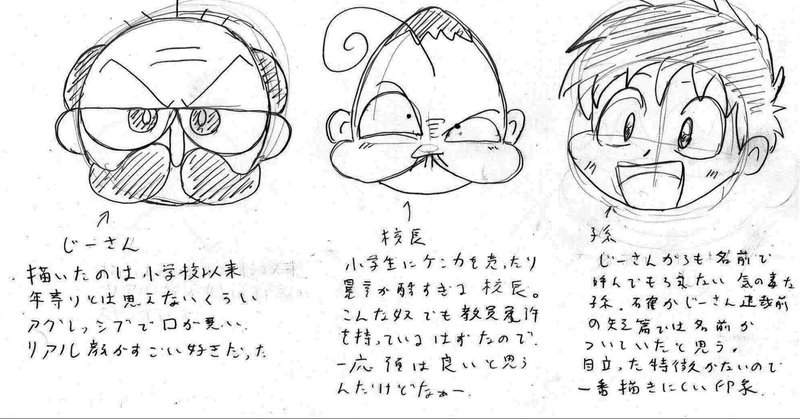 じーさん
描いたのは小学校以来
年寄りとは思えないくらい
アグレッシブで口が悪い。
リアル顔がすごい好きだった
校長
小学生にケンカを売ったり
暴言が酷すぎる校長。
こんな奴でも教員免許
を持っているはずなので
一応頭は良いと思う
んだけどなぁー。
孫
じーさんからも名前で
呼んでもらえない気の毒な
孫。確かじーさん連載前
の短篇では名前が
ついていたと思う。
目立った特徴がないので
一番描きにくい印象